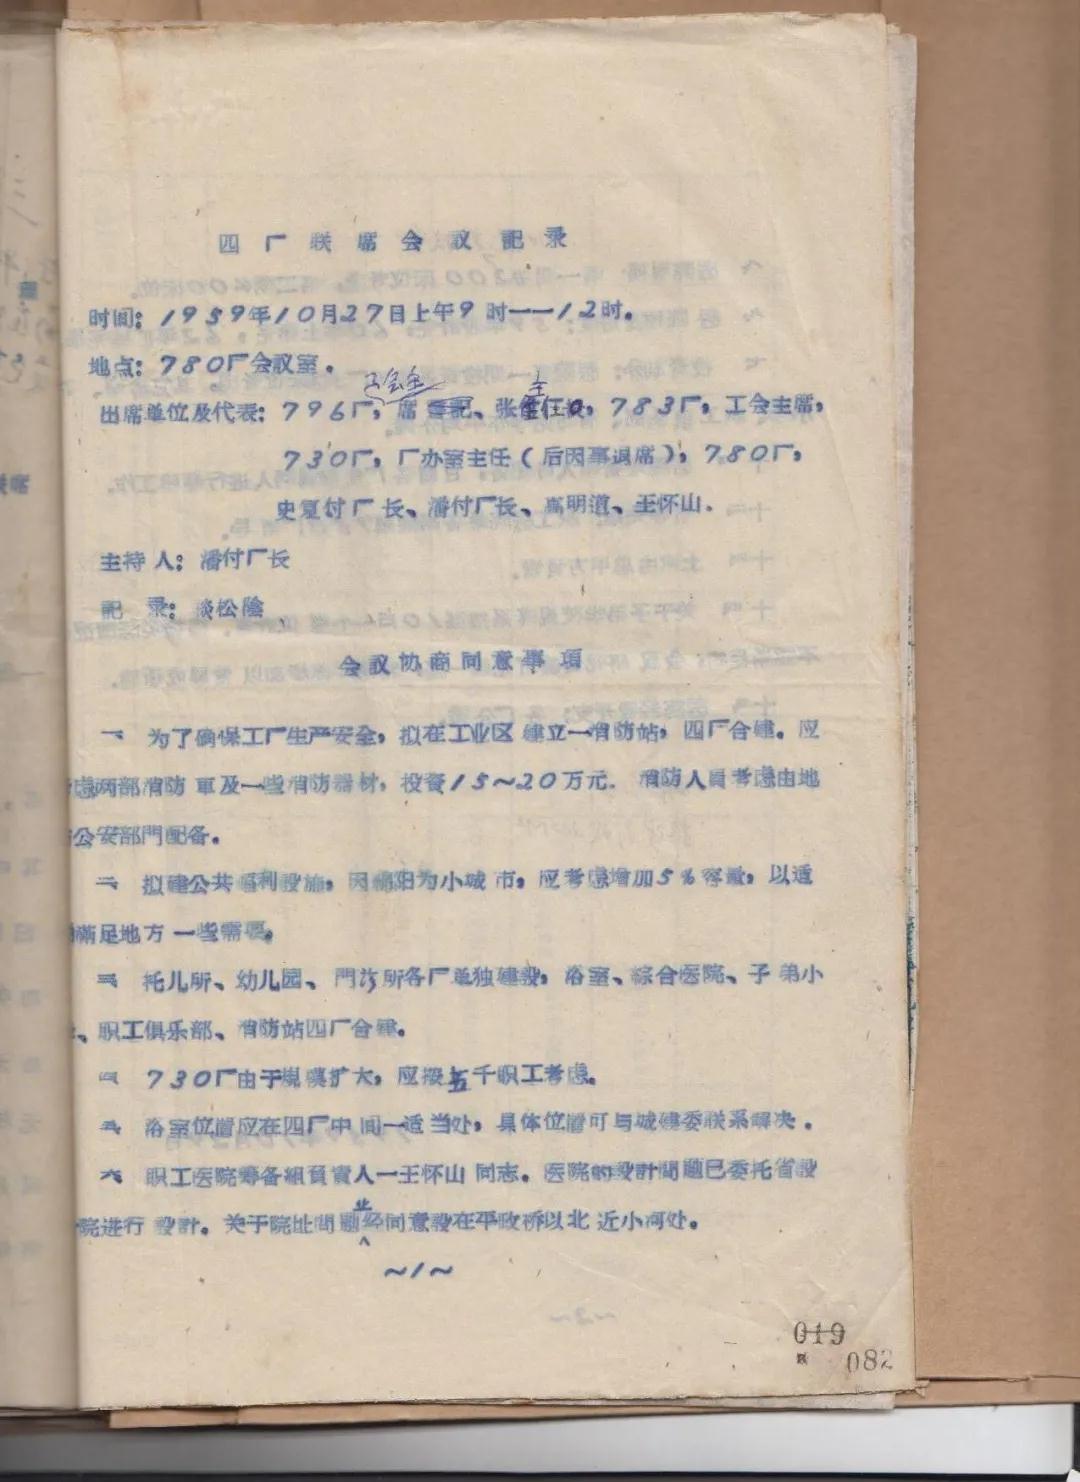 四厂联席会议記录
时间：1959年10月27日上午9时——12时。
地点：780厂会议室。
出席单位及代表：796厂，席、张主任，783厂，工会主席，
730厂，厂办室主任（后因事退席），780厂，
史夏付厂长、潘付厂长、高明道、王怀山．
主持人：潘付厂长
記录：谈松陰
会议协商同意事項
一 为了确保工厂生产安全，拟在工业区建立一消防站，四厂合建。应
虑两部消防車及一些消防器材，投资15～20万元．消防人員考虑由地
公安部門配备。
二 拟建公共福利設施，因綿阳为小城市，应考虑增加5％容量，以适
滿足地方一些需要。
三 托儿所、幼儿园、門诊所各厂单独建設，浴室、綜合医院、子弟小
、职工俱乐部、消防站四厂合建。
四 730厂由于規模扩大，应按五千职工考虑。
五 浴室位置应在四厂中间一适当处，具体位置可与城建委联系解决．
六 职工医院筹备組負責人一王怀山同志。医院的設計問題已委托省設
院进行設計。关于院址問題业经同意設在平政桥以北近小河处。
～1～
019
082